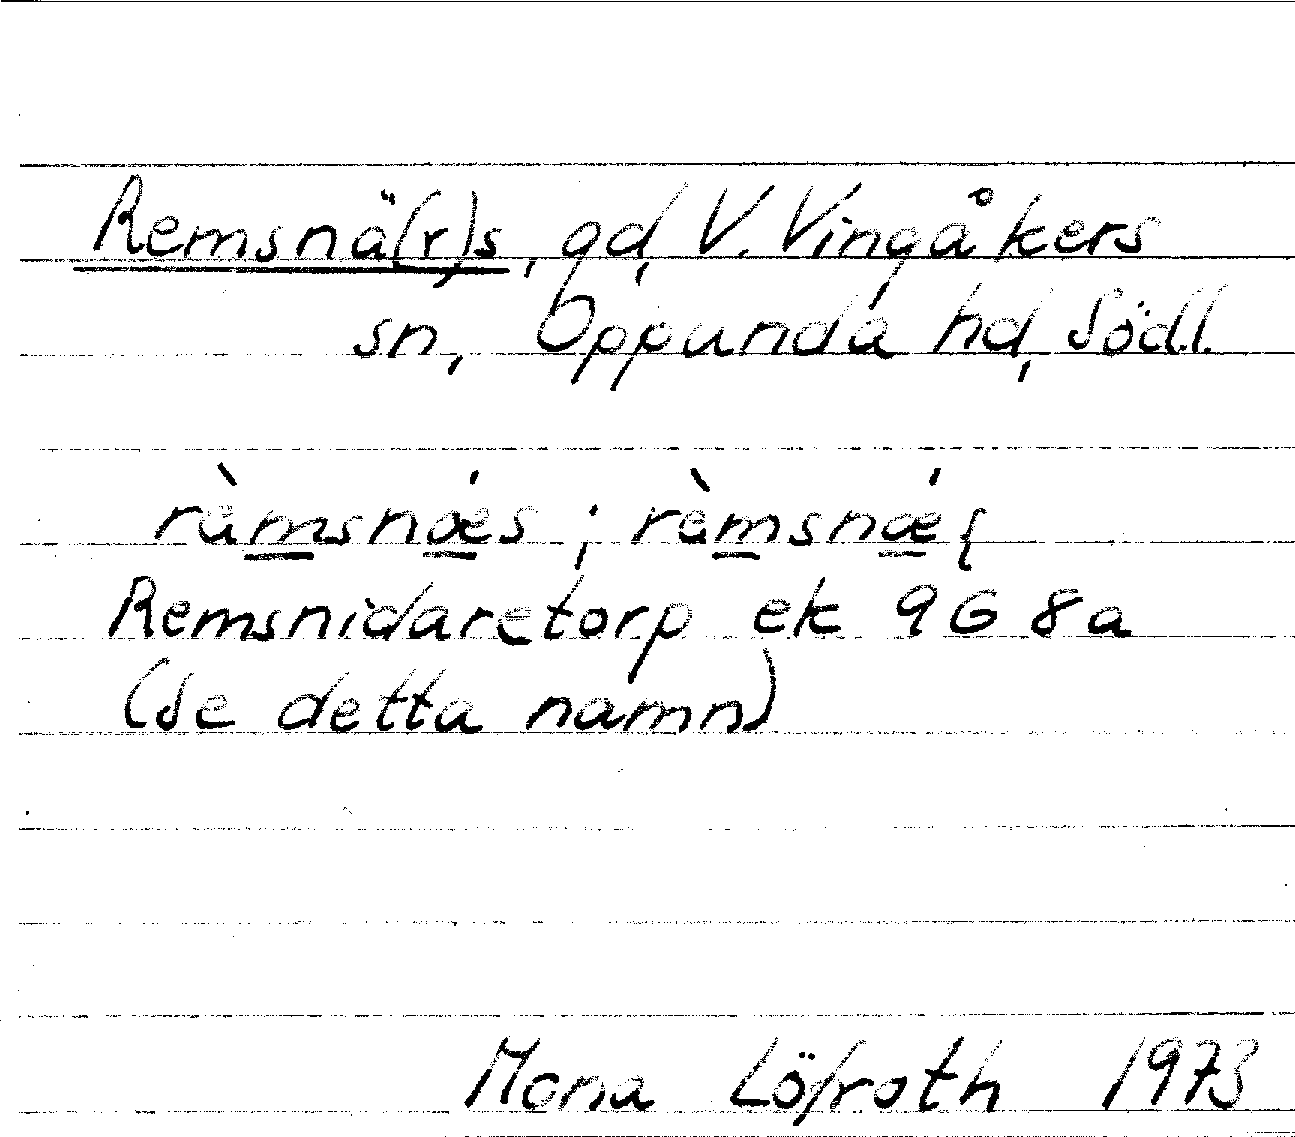 Remsnä(r)s, gd, V. Vingåkers
sn, Oppunda hd, Södl.
ràmsnǽs ; rèmsnǽʂ
Remsnidaretorp ek 9G 8a
(Se detta namn)
Mona Löfroth 1973